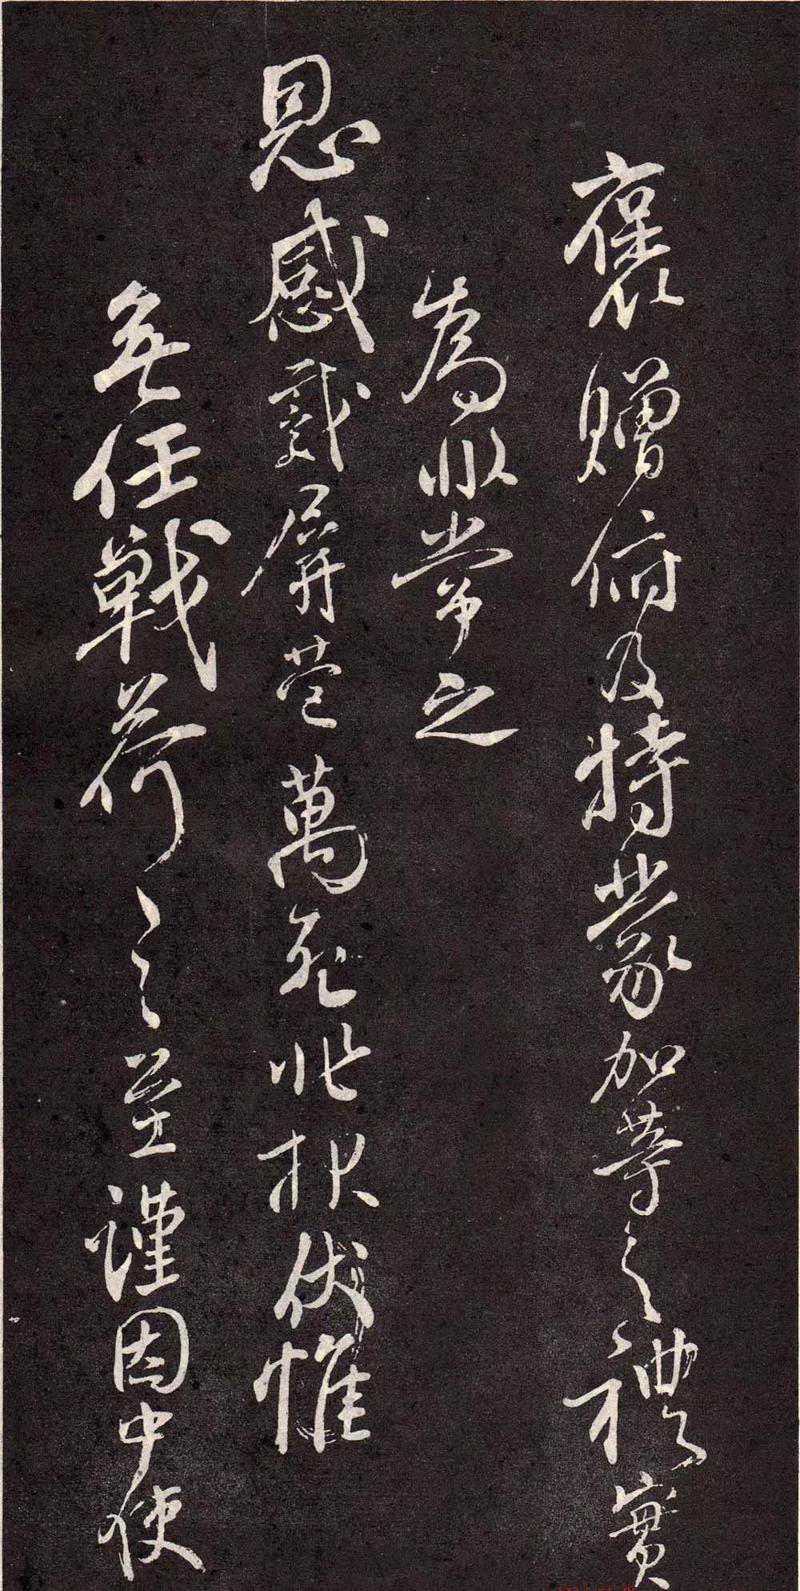 褒贈俯及特蒙加等之禮實
為非常之
恩感戴屏營萬死非报伏惟
無任戰荷之至謹因中使